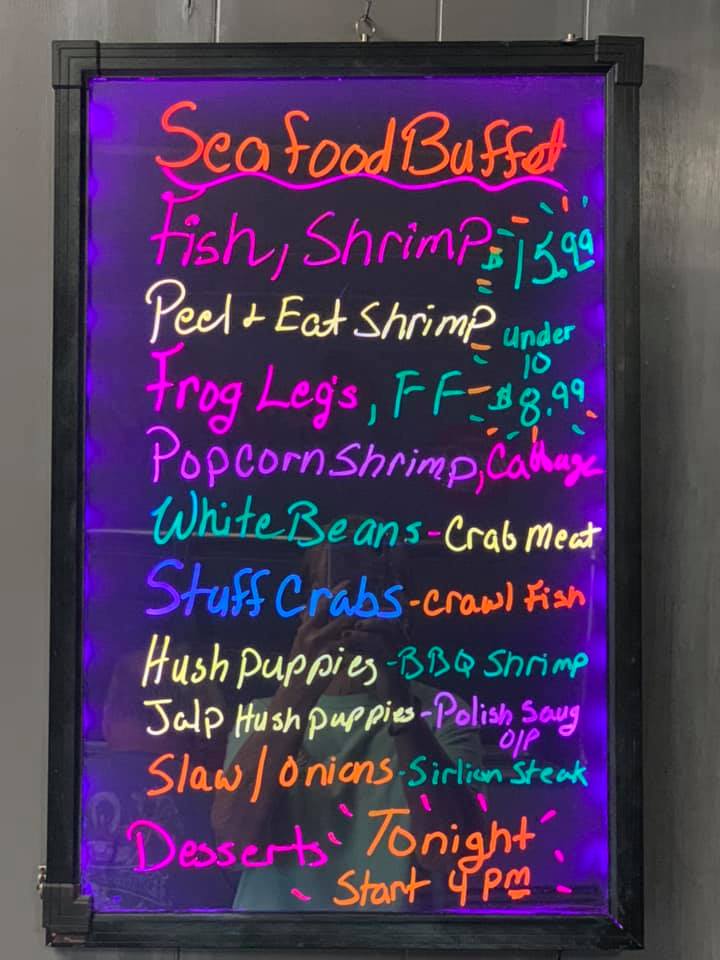 Seafood Buffet
Fish, Shrimp $15.99
Peel & Eat Shrimp
under
10
Frog Leg's, FF $8.99
Popcorn Shrimp, Cabbage
White Beans - Crab Meat
Stuff Crabs - Crawl Fish
Hush Puppies - BBQ Shrimp
Jalp Hush Puppies - Polish Saug
O/P
Slaw / Onions - Sirlion Steak
Desserts Tonight
Start 4 pm